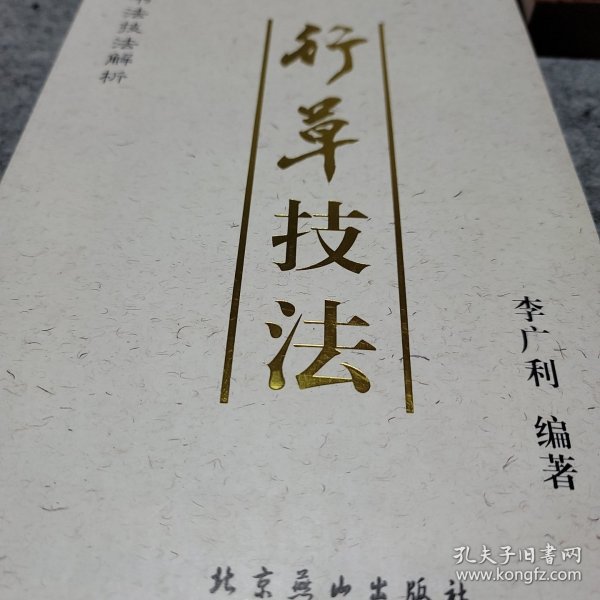 书法技法解析
行草技法
李广利 编著
北京燕山出版社
孔夫子旧书网
www.kongfz.com